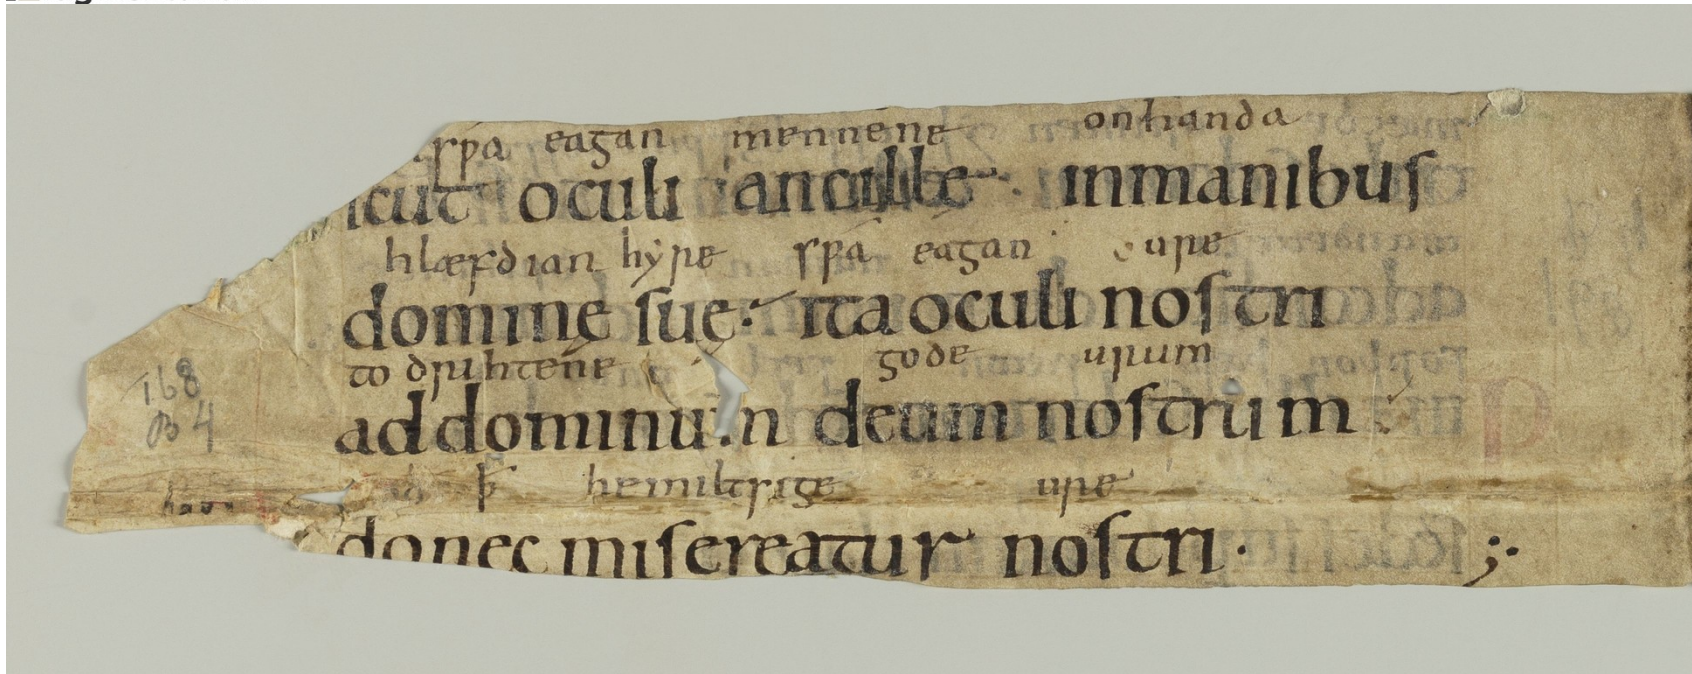 ſpa eagan mennene onhanda
icut oculi ancille · inmanibus
hlæfdian hyre spa eagan ure
domine sue· ita oculi nostri
to drihtene gode urum
168
B 4
ad dominum deum nostrum
þ hemiltsige ure
donec misereatur nostri · ;·